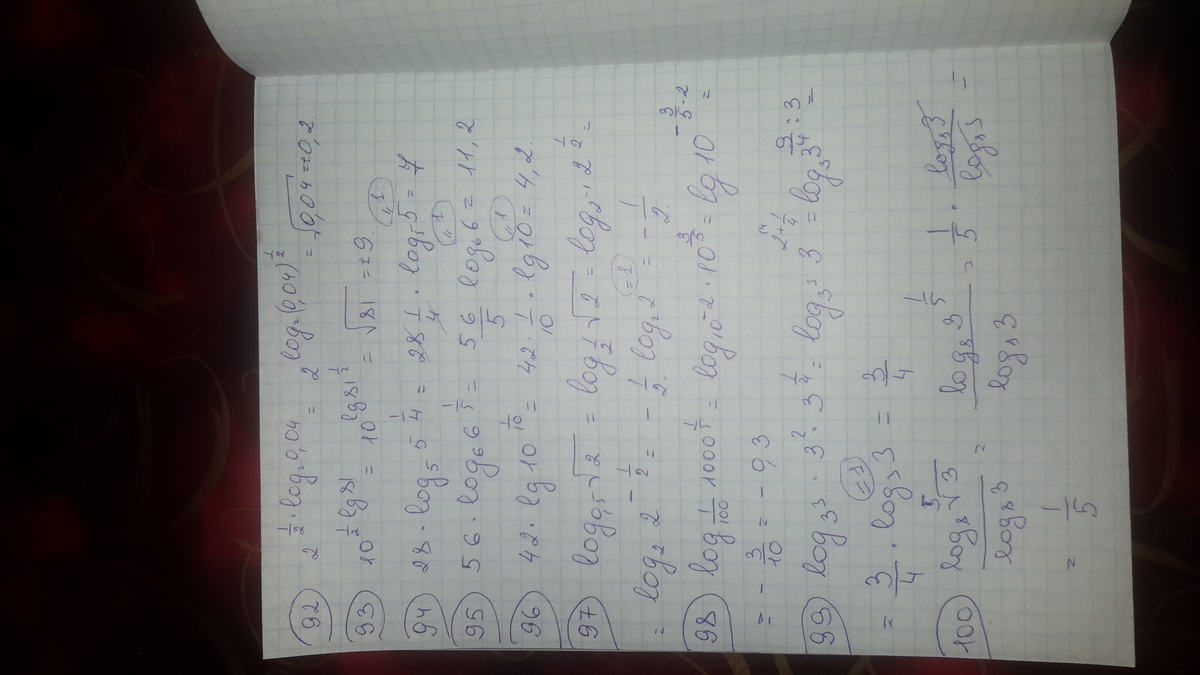 92 2^{1/2 · log₂0,04} = 2^{log₂(0,04)^{1/2}} = √0,04 = 0,2.
93 10^{1/2 lg81} = 10^{lg81^{1/2}} = √81 = 9.
94 28 · log₅ 5^{1/4} = 28 1/4 · log₅5 = 7
"1
95 56 · log₆ 6^{1/5} = 56/5 log₆6 = 11,2
"1
96 42 · lg 10^{1/10} = 42 · 1/10 · lg10 = 4,2.
"1
97 log_{0,5} √2 = log_{1/2} √2 = log_{2^{-1}} 2^{1/2} =
= log₂ 2^{-1/2} = -1/2 · log₂2 = -1/2.
=1
98 log_{1/100} 1000^{1/5} = log_{10^{-2}} · 10^{3/5} = lg 10^{-3/5 · 2} =
= -3/10 = -0,3
99 log_{3^3} · 3² · 3^{1/4} = log_{3^3} 3^{2+1/4} = log₃ 3^{9/4 : 3} =
= 3/4 · log₃3 = 3/4
=1
100 log₈ ⁵√3 / log₈ 3 = log₈ 3^{1/5} / log₈ 3 = 1/5 · log₈3 / log₈3 =
= 1/5